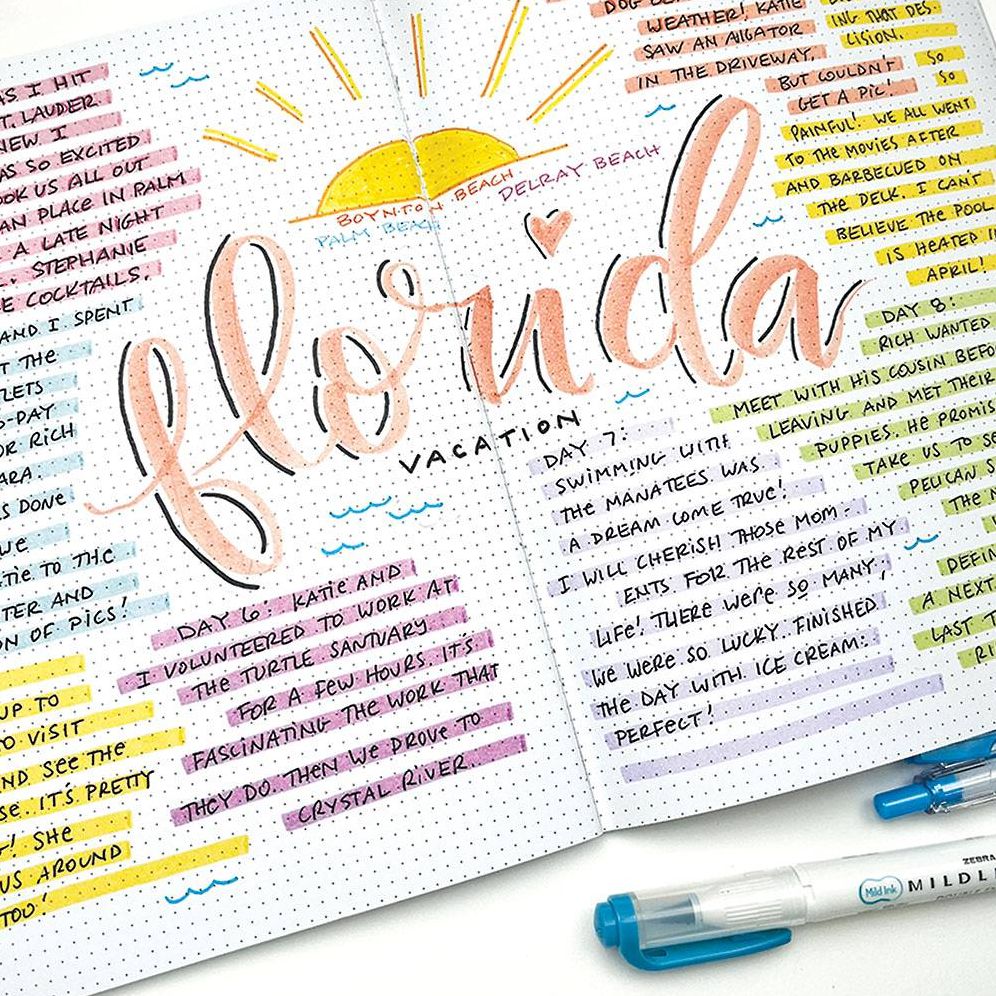 AS I HIT
T. LAUDER.
NEW I
AS SO EXCITED
OOK US ALL OUT
AN PLACE IN PALM
A LATE NIGHT
STEPHANIE
E COCKTAILS.
AND I SPENT
T THE
LETS
D-PAY
OR RICH
ARA.
S DONE
WE
ATIE TO THE
TER AND
ON OF PICS!
UP TO
TO VISIT
ND SEE THE
SE. IT'S PRETTY
! SHE
US AROUND
TOO!
BOYNTON BEACH
DELRAY BEACH
PALM BEACH
florida
VACATION
DAY 6: KATIE AND
I VOLUNTEERED TO WORK AT
THE TURTLE SANTUARY
FOR A FEW HOURS. IT'S
FASCINATING THE WORK THAT
THEY DO. THEN WE PROVE TO
CRYSTAL RIVER.
WEATHER! KATIE
SAW AN AlIGATOR
IN THE DRIVEWAY,
BUT COULDN'T
GET A PIC!
ING THAT DES
LISION.
SO
SO
PAINFUL! WE ALL WENT
TO THE MOVIES AFTER
AND BARBECUED ON
THE DECK. I CAN'T
BELIEVE THE POOL
IS HEATED I
APRIL!
DAY 7:
SWIMMING WITH
THE MANATEES WAS
A DREAM COME TRUE!
I WILL CHERISH THOSE MOM-
ENTS FOR THE REST OF MY
LIFE! THERE WERE SO MANY,
WE WERE SO LUCKY. FINISHED
THE DAY WITH ICE CREAM:
PERFECT!
DAY 8:
RICH WANTED
MEET WITH HIS COUSIN BEFO
LEAVING AND MET THEIR
PUPPIES. HE PROMIS
TAKE US TO SE
PELICAN S
THE N
DEFIN
A NEXT
LAST T
RI
ZEBRA
Mild Ink MILDLI